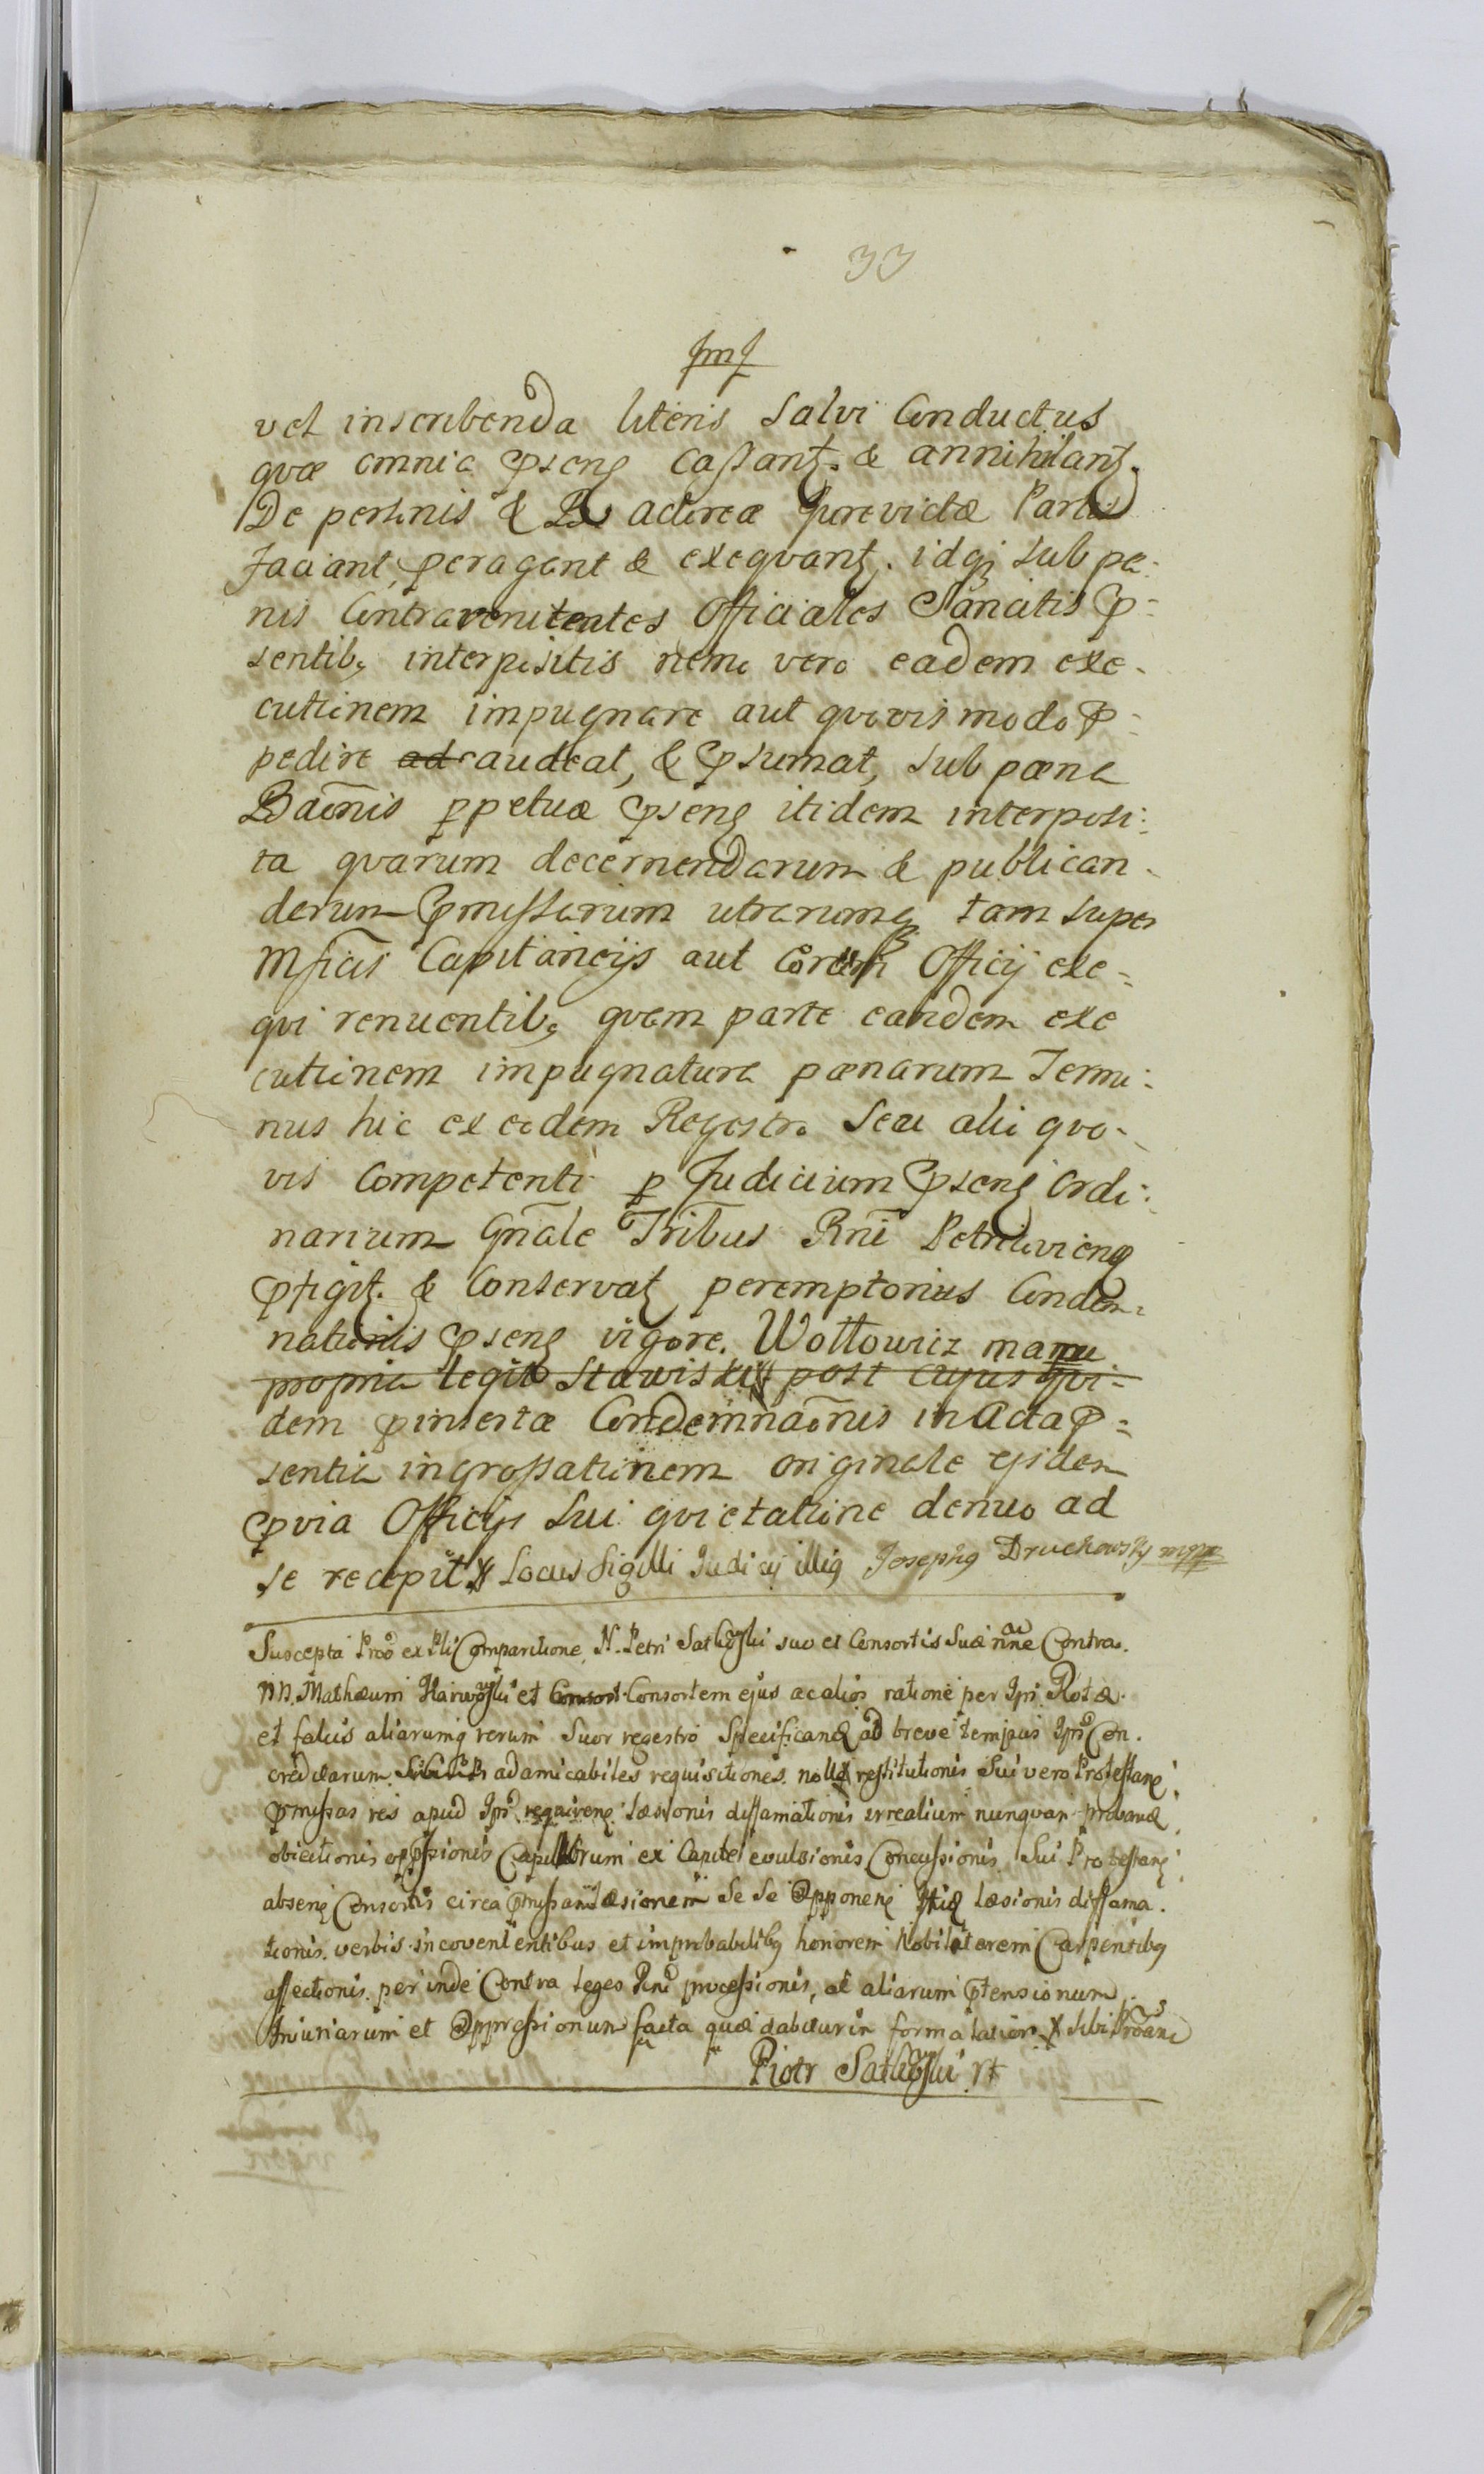 33
JmJ
vel inscribenda literis Salvi Conductus
quæ omnia pseng Cassantz. & annihilantz.
De personis & Bo acloreæ Jurevictæ Partis
faciant, peragant & exequantz. idqz sub pæ-
nis Contravenientes Officiales Sancitis p-
sentibz interpositis nemo vero eadem exe-
cutionem impugnare aut quovis modo p-
pedire ad audeat, & psumat, sub pæna
Baõnis ppetuæ pseng itidem interposi-
ta quarum decernendarum & publican-
darum pmissarum utrarumqz tam super
Mficis Capitaneijs aut Eorum Officij exe-
qui renuentibz quam parte eandem exe
cutionem impugnatura pænarum Termi-
nus hic ex eodem Regestro Seu alio quo-
vis Competenti p Judicium pseng Ordi-
narium Gñale Tribus Rñi Petricovieng
pfigitz. & Conservatz peremptorius Condem-
nationis pseng vigore. Wołłowicz manu
propria legit Stawiski post cujus qvi-
dem pinsertæ Condemnaõnis in Acta p-
sentia ingrossationem originale ejidem
pvia Officijs Sui quietatione denuo ad
se recepit Locus Sigilli Judicij illig Josephg Druchowsky mpp
Suscepta Prõo ex Pli Comparitione N. Petri Satkowski suo et Consortis Suæ nine Contra
NN. Mathæum et Consort Consortem ejus ac alios ratione per Ipõ Rotæ
et falcis aliarumqz rerum Suor regestro Specificand ad breve tempus Ipõ Con-
creditarum ad amicabiles requisitiones nolle restitutionis Sui vero Protestang
pmissas res apud Ipõ requireng læsionis diffamationis irrealium nunquam proband
obiectionis oppssionis Capillorum ex Capite evulsionis Concussionis Sui Protestang
abseng Consortis circa pmissam læsionem se se Opponeng læsionis diffama-
tionis verbis incovenientibus et improbabilibz honorem Nobilitarem Carpentibz
affectionis perinde Contra leges Rni processionis, ac aliarum ptensionum
Iniuriarum et Oppressionum facta quæ dabitur in forma latiori sibi Prõang
Piotr Satkowski